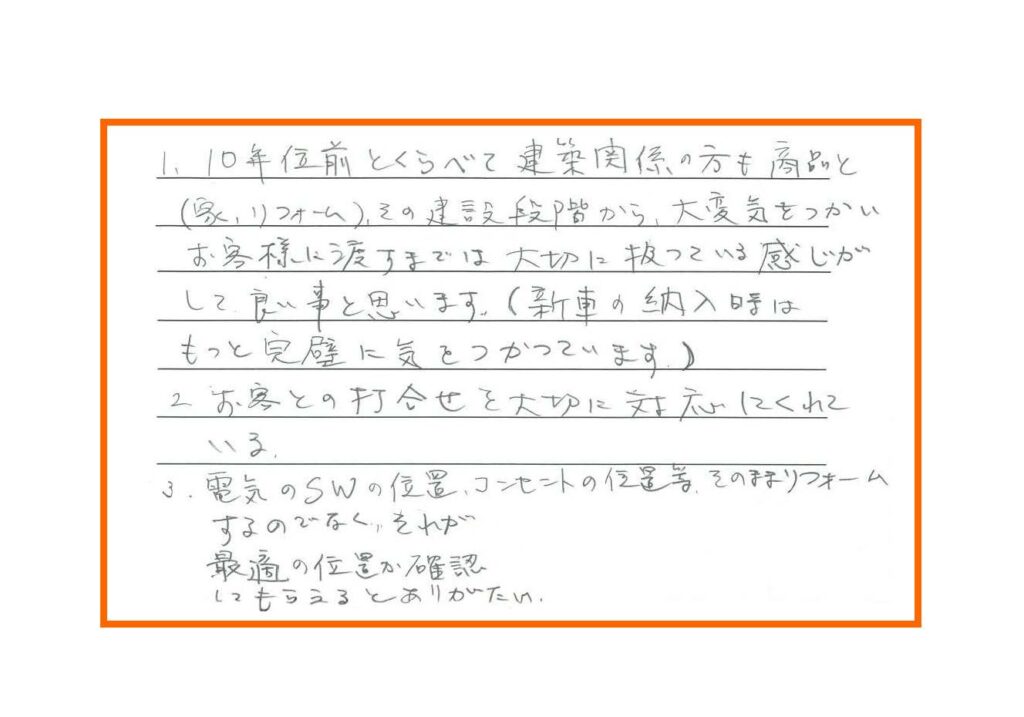 1. 10年位前とくらべて建築関係の方も商品と
(家、リフォーム)、その建設段階から、大変気をつかい
お客様に渡すまでは大切に扱っている感じが
して良い事と思います。(新車の納入時は
もっと完璧に気をつかっています。)
2 お客との打合せを大切に対応してくれて
いる。
3. 電気のSWの位置、コンセントの位置等、そのままリフォーム
するのでなく、それが
最適の位置か確認
してもらえるとありがたい.